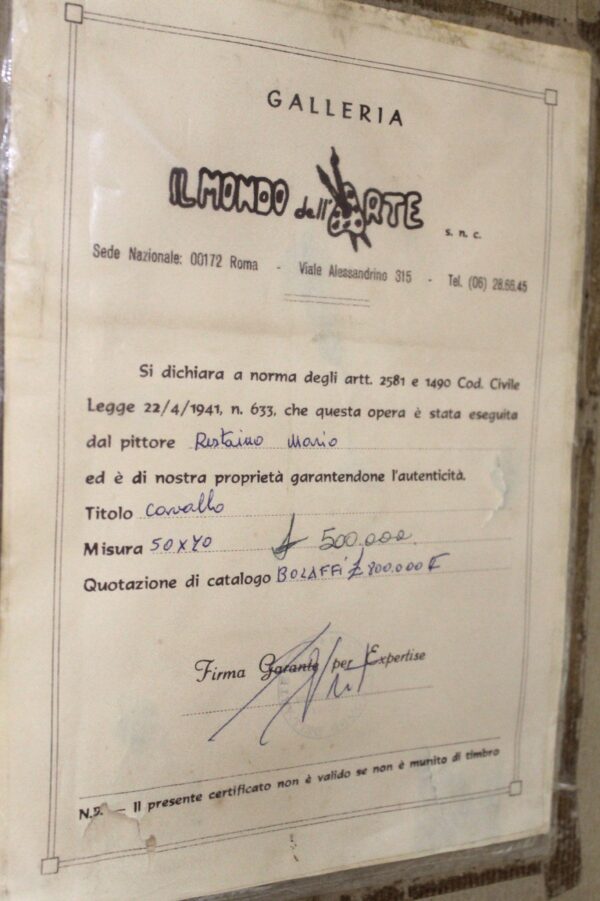 GALLERIA
IL MONDO dell'ARTE s. n. c.
Sede Nazionale: 00172 Roma - Viale Alessandrino 315 - Tel. (06) 28.66.45
Si dichiara a norma degli artt. 2581 e 1490 Cod. Civile
Legge 22/4/1941, n. 633, che questa opera è stata eseguita
dal pittore Restaino Mario
ed è di nostra proprietà garantendone l'autenticità.
Titolo Cavallo
Misura 50x70 £ 500.000
Quotazione di catalogo BOLAFFI £ 800.000
Firma Garante per Expertise
N.B. — Il presente certificato non è valido se non è munito di timbro